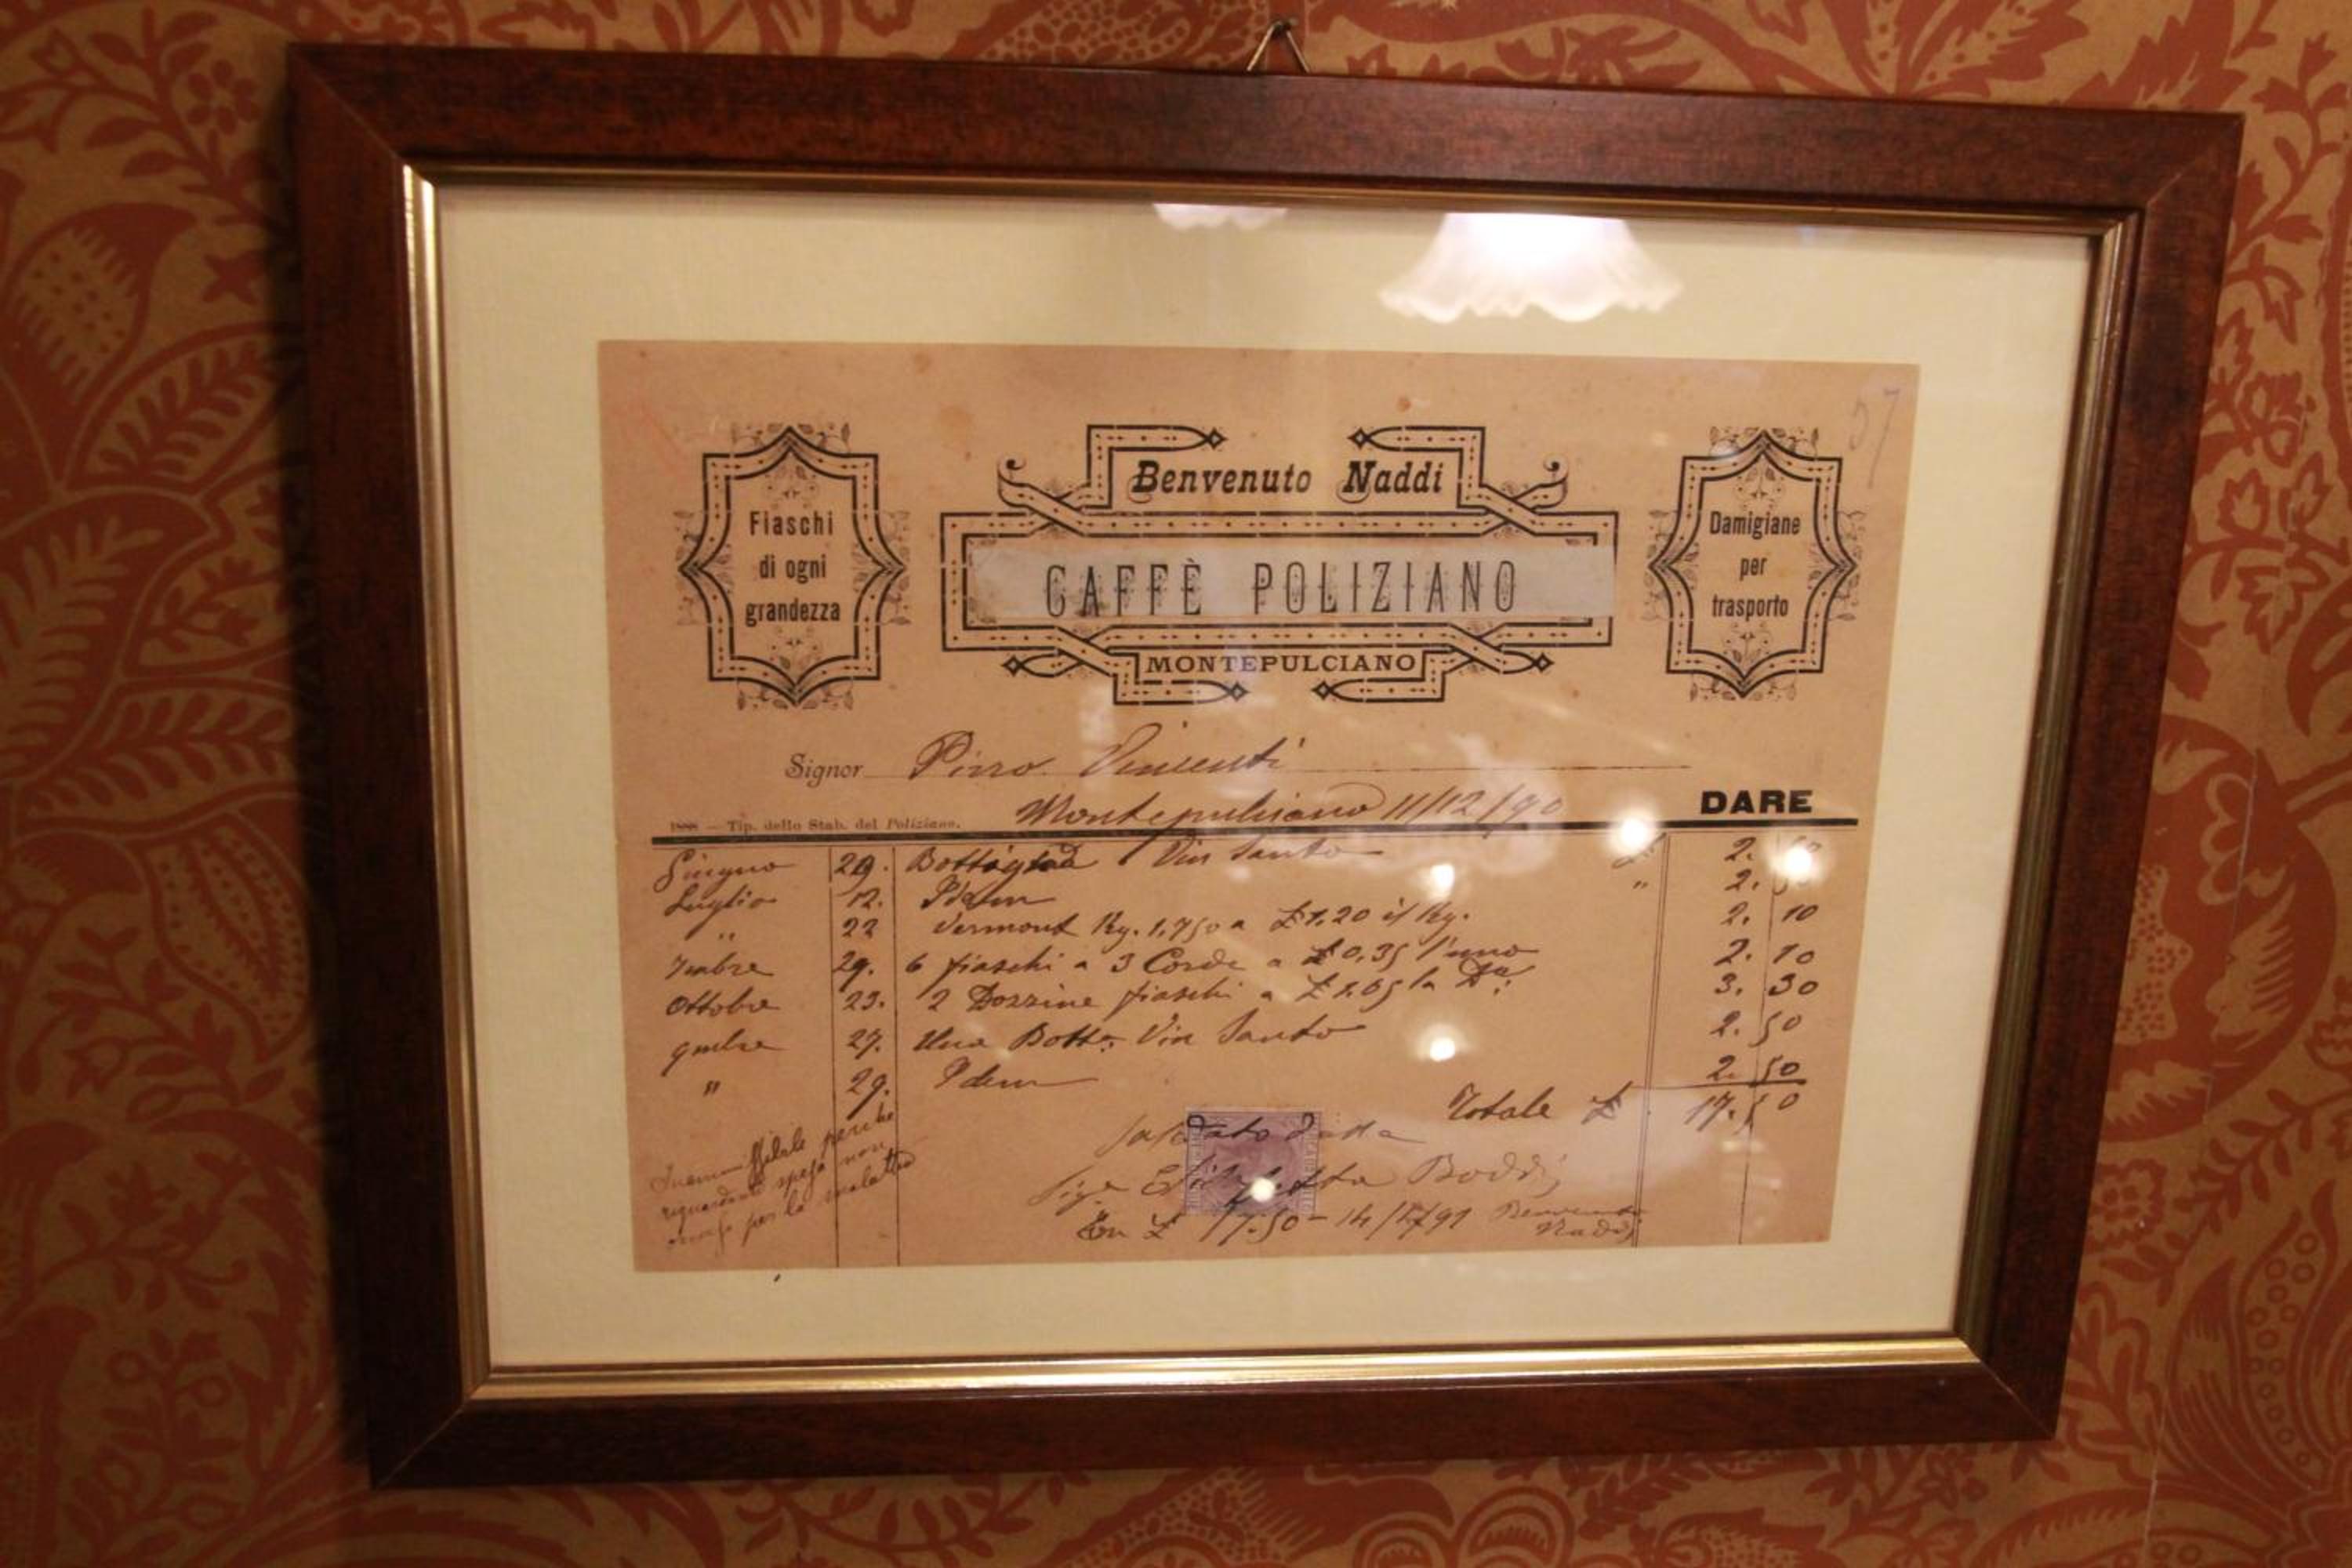 57
Benvenuto Naddi
Fiaschi
di ogni
grandezza
CAFFÈ POLIZIANO
Damigiane
per
trasporto
MONTEPULCIANO
Signor Pirro Vincenti
Montepulciano 11/12/90
DARE
1888 — Tip. dello Stab. del Poliziano.
Giugno 29. Bottiglia Vin Santo 2.
Luglio 12. Idem " 2. 50
" 22 Vermout Kg. 1,750 a £ 1,20 il Kg. 2. 10
7mbre 29. 6 fiaschi a 3 Corde a £ 0,35 l'uno 2. 10
Ottobre 23. 2 Dozzine fiaschi a £ 1.65 la Da: 3. 30
9mbre 27. Una Botta: Vin Santo 2. 50
" 29. Idem 2. 50
Totale £ 17. 50
Inammissibile perchè
riguardante spesa non
per la malattia
Saldato dalla
Sig.a Boddi,
In £ 17.50 - 14/ /91 Benvenuto
Naddi